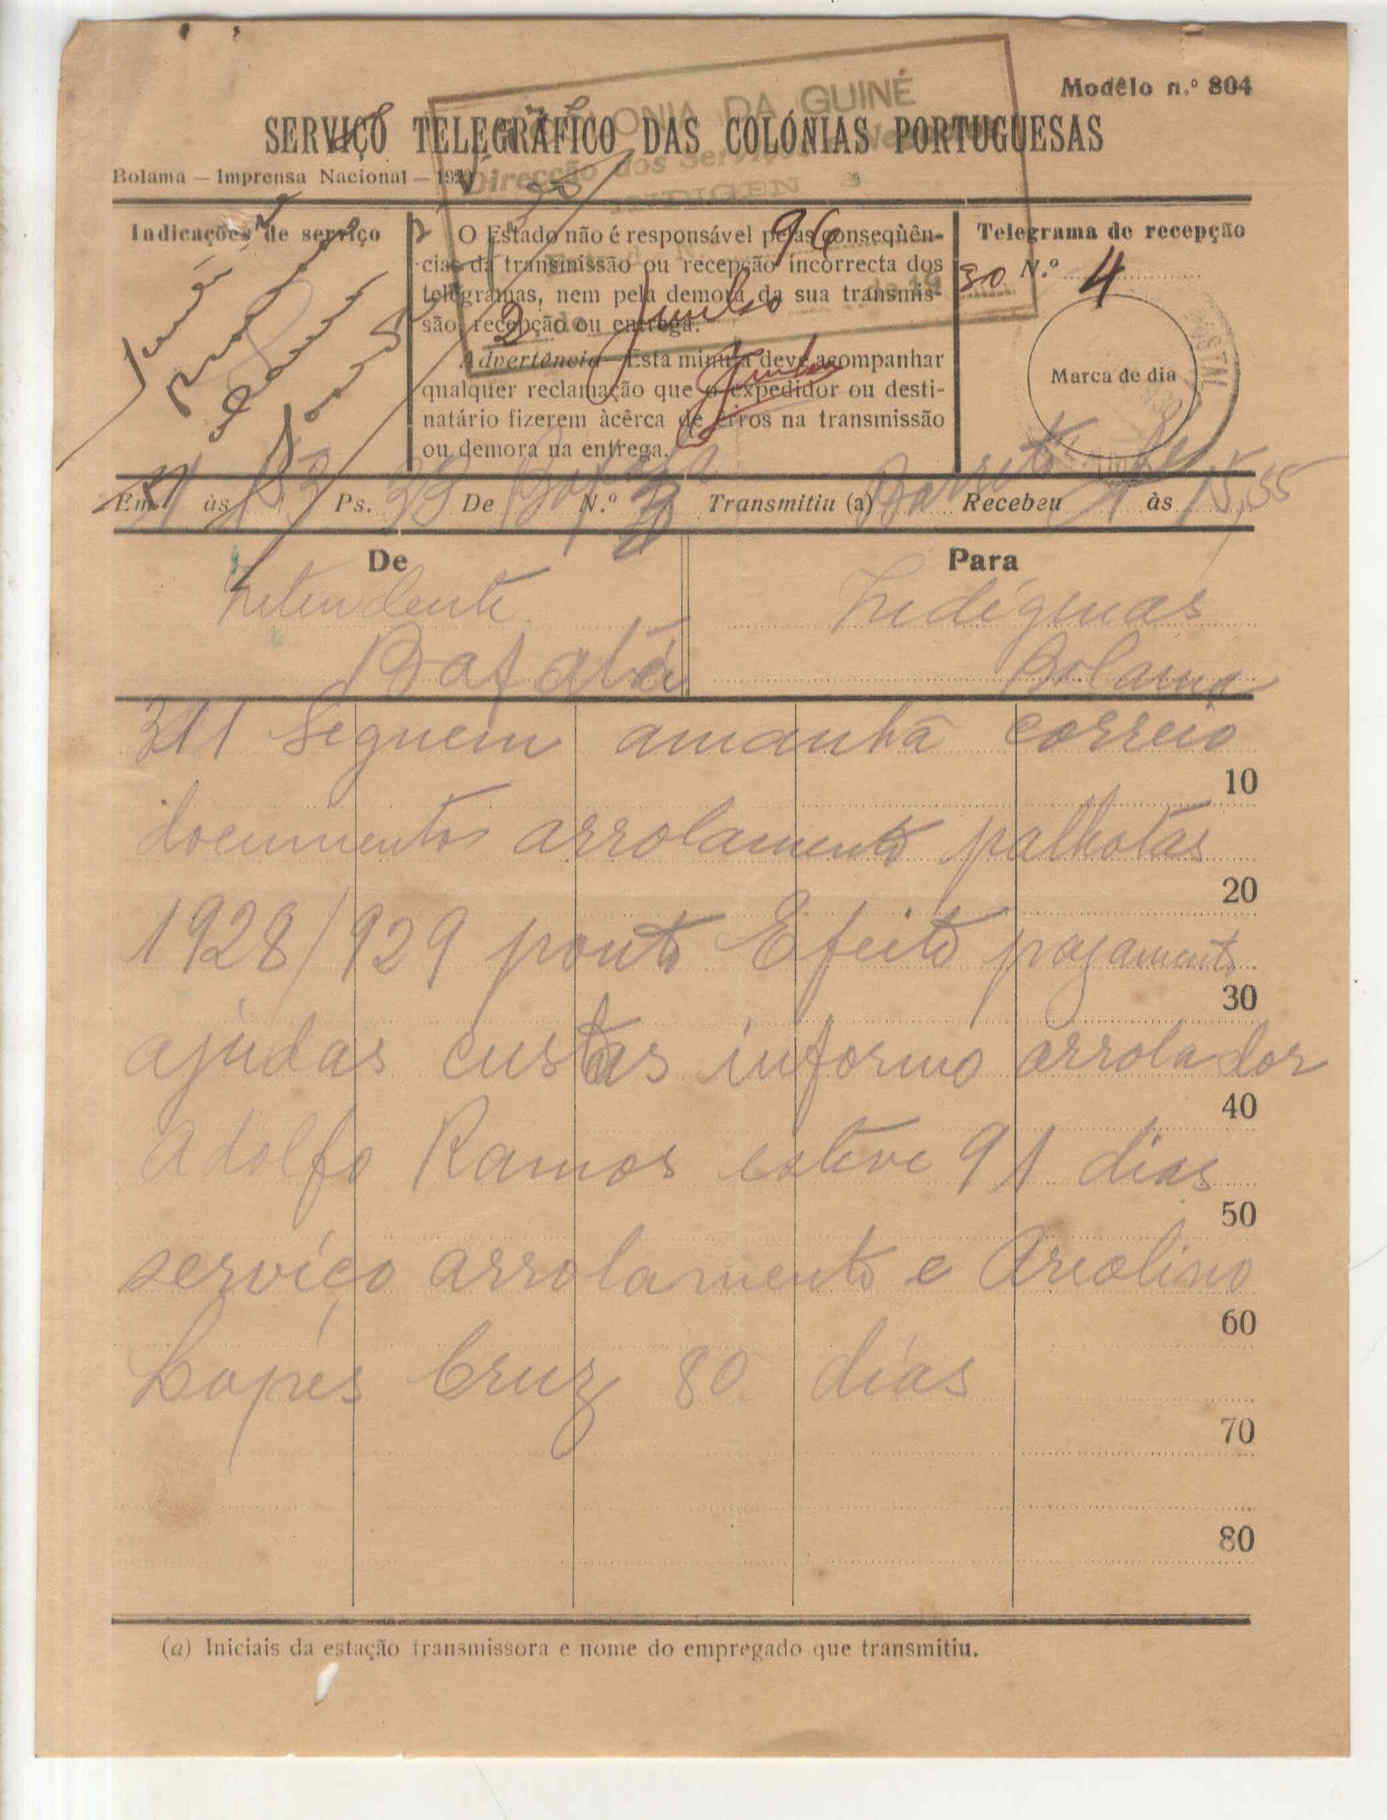 Modêlo n.º 804
COLONIA DA GUINÉ
SERVIÇO TELEGRÁFICO DAS COLÓNIAS PORTUGUESAS
Direcção dos Serviços
Bolama — Imprensa Nacional —
Indicações de serviço
O Estado não é responsável pelas conseqùên-
cias da transmissão ou recepção incorrecta dos
telegramas, nem pela demora da sua transmis-
são, recepção ou entrega.
Advertência—Esta minuta deve acompanhar
qualquer reclamação que o expedidor ou desti-
natário fizerem àcêrca de erros na transmissão
ou demora na entrega.
96
30
2 Junho
Telegrama de recepção
N.º 4
Marca de dia
Em às Ps. 33 De Bafatá N.º Transmitiu (a) Barreto Recebeu às 15,55
De
Intendente
Bafatá
Para
Indígenas
Bolama
311 Seguem amanhã correio
10
documentos arrolamento palhotas
20
1928/929 ponto Efeito pagamento
30
ajudas custas informo arrolador
40
Adolfo Ramos esteve 91 dias
50
serviço arrolamento e
60
Lopes Cruz 80 dias
70
80
(a) Iniciais da estação transmissora e nome do empregado que transmitiu.